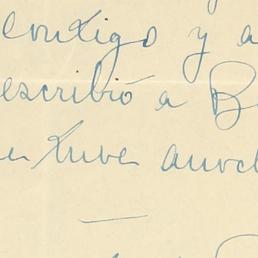 contigo y a
escribió a B
tuve anoch